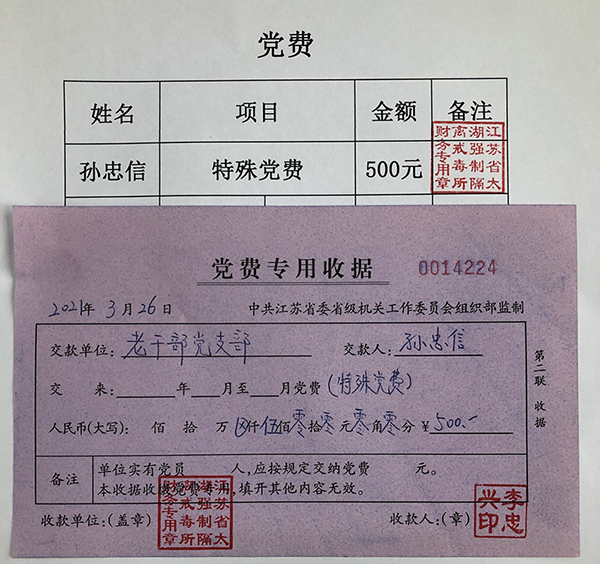 党费
姓名 项目 金额 备注
孙忠信 特殊党费 500元
江苏省太
湖强制隔
离戒毒所
财务专用章
党费专用收据 0014224
2021年 3月 26日 中共江苏省委省级机关工作委员会组织部监制
交款单位: 老干部党支部 交款人: 孙忠信
交 来: 年 月至 月党费 (特殊党费)
人民币(大写): 佰 拾 万 ⊗仟 伍佰 零拾 零元 零角 零分 ¥ 500.-
备注 单位实有党员 人,应按规定交纳党费 元。
本收据收缴党费专用,填开其他内容无效。
收款单位:(盖章) 收款人:(章)
江苏省太
湖强制隔
离戒毒所
财务专用章
李忠
兴印
第二联 收据